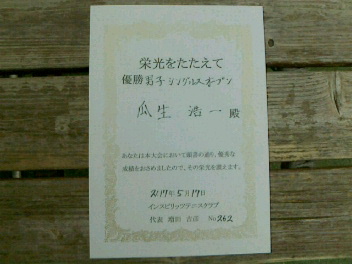 栄光をたたえて
優勝 男子シングルスオープン
瓜生 浩一 殿
あなたは本大会において頭書の通り、優秀な
成績をおさめましたので、その栄光を讃えます。
2017年5月17日
インスピリッツテニスクラブ
代表 増田 吉彦 No262